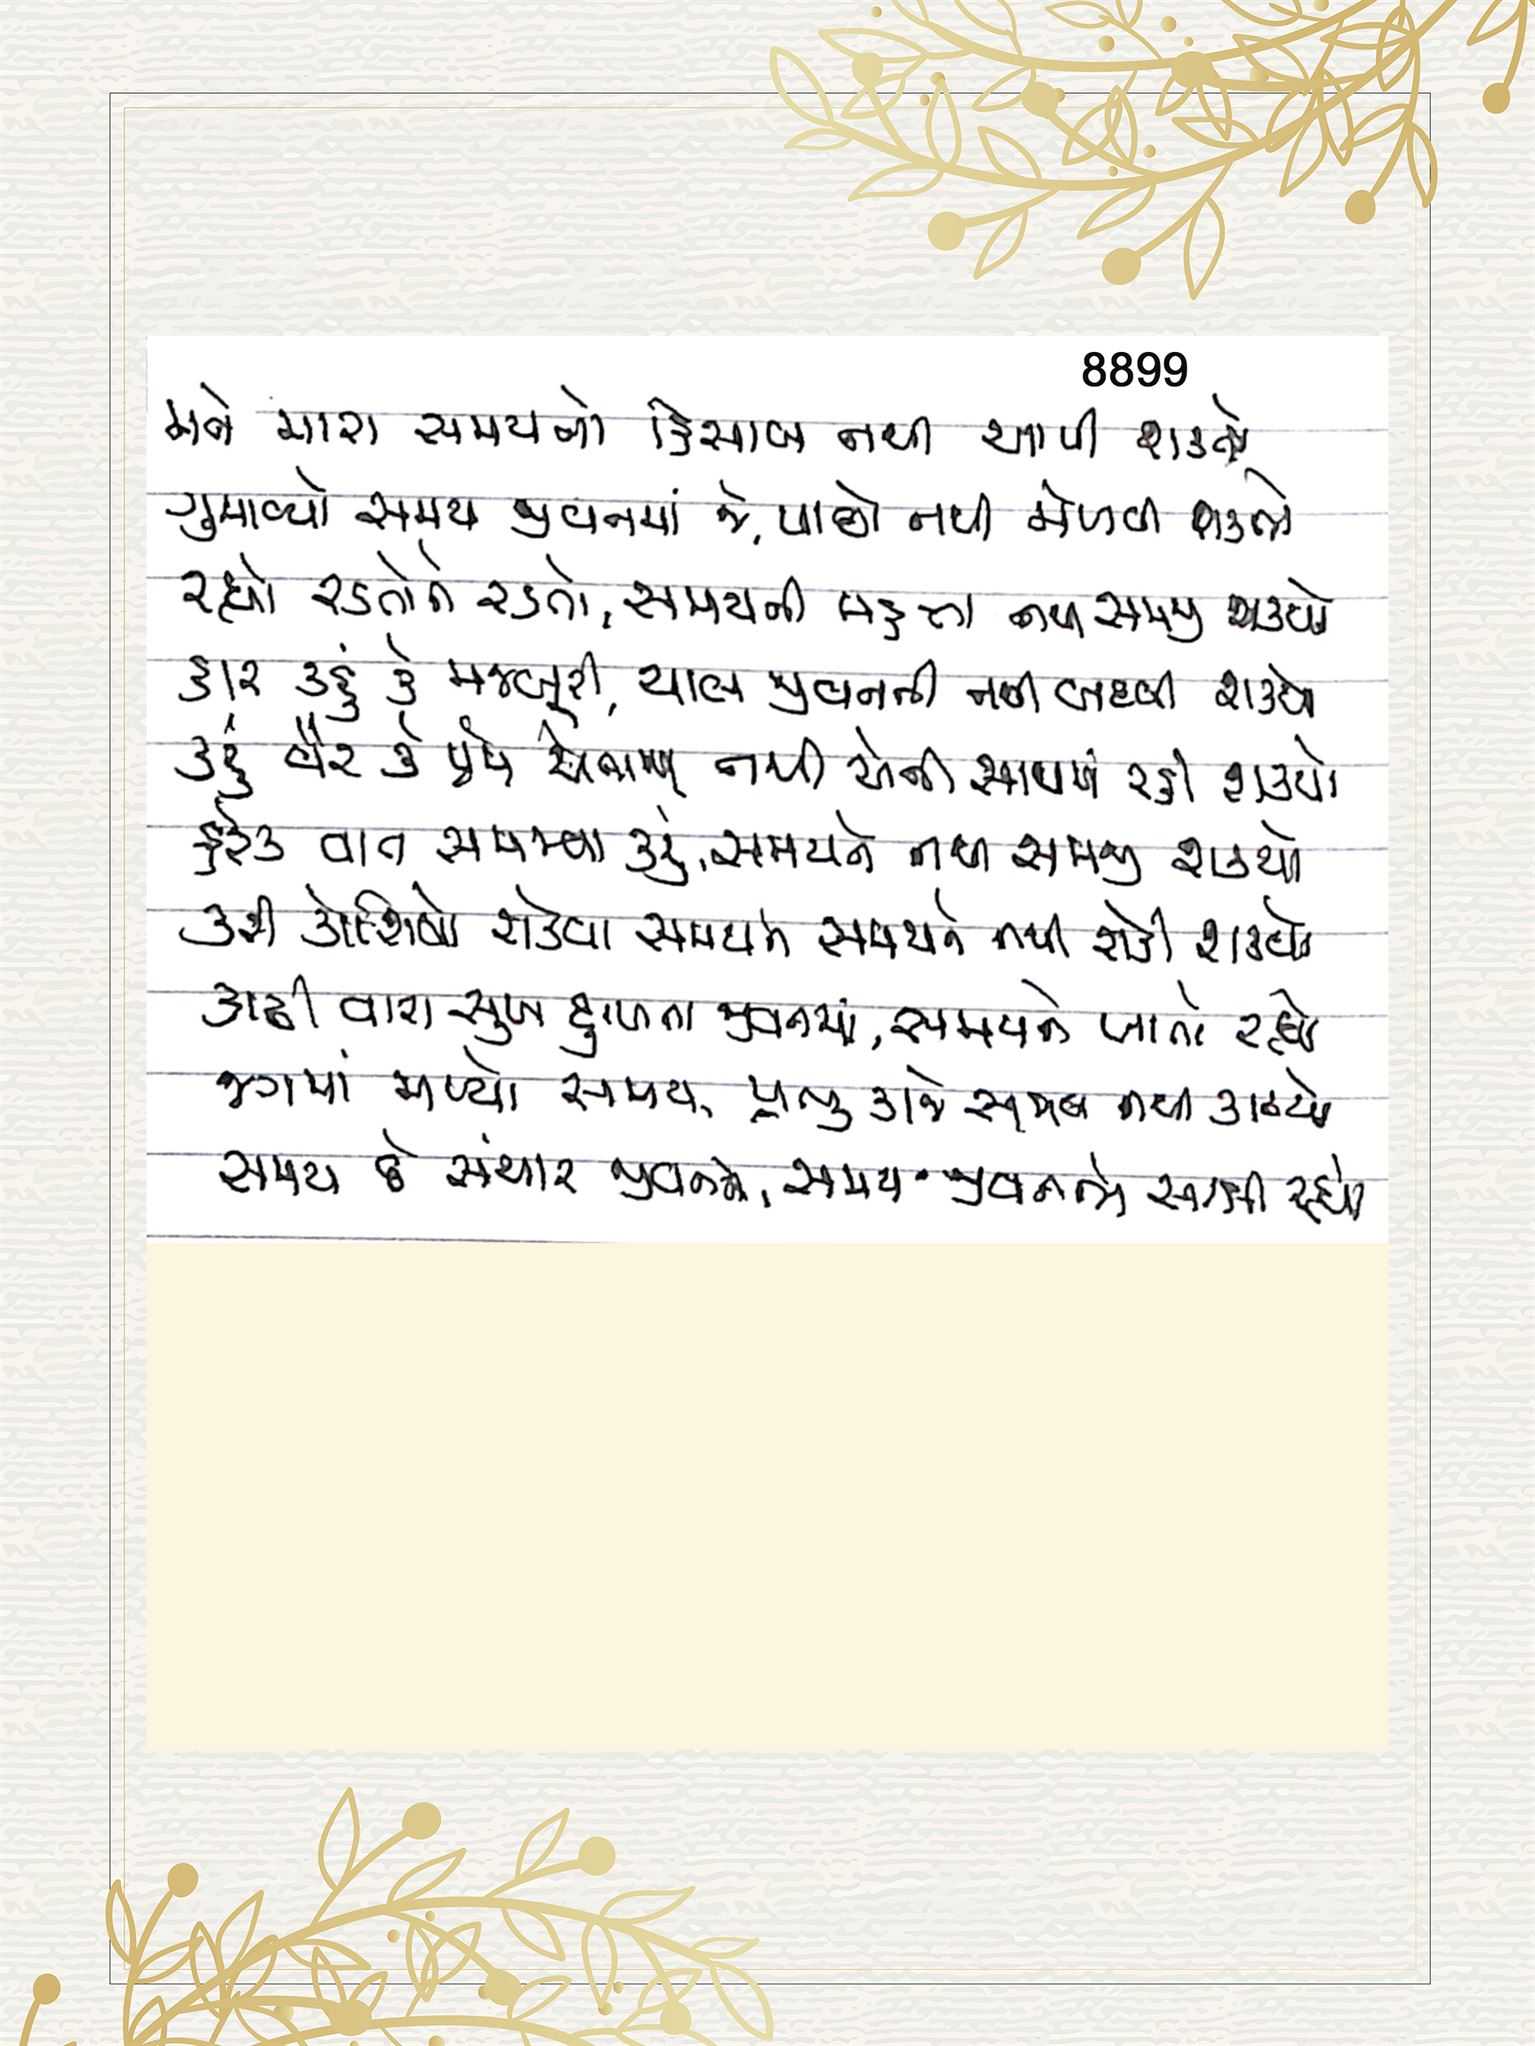 8899
મને મારા સમયનો હિસાબ નથી આપી શક્તો
ગુમાવ્યો સમય જીવનમાં જે, પાછો નથી મેળવી શક્તો
રહ્યો રડતોને રડતો, સમયની મહત્તા નથી સમજી શક્યો
હાર કહું કે મજબૂરી, ચાલ જીવનની નથી બદલી શક્યો
કહું વૈર કે પ્રેમ નથી એની સાથમાં રહી શક્યો
હરેક વાત સમજવા કહું, સમયને નથી સમજી શક્યો
કરી કોશિશો રોકવા સમયને સમયને નથી રોકી શક્યો
કાઢી વારા સુખ દુઃખના જીવનમાં, સમયને ખાતો રહ્યો
જગમાં મળ્યો સમય, પ્રભુ કાજે સમય નથી કાઢયો
સમય છે સંથાર જીવનને, સમય જીવનને રહ્યો